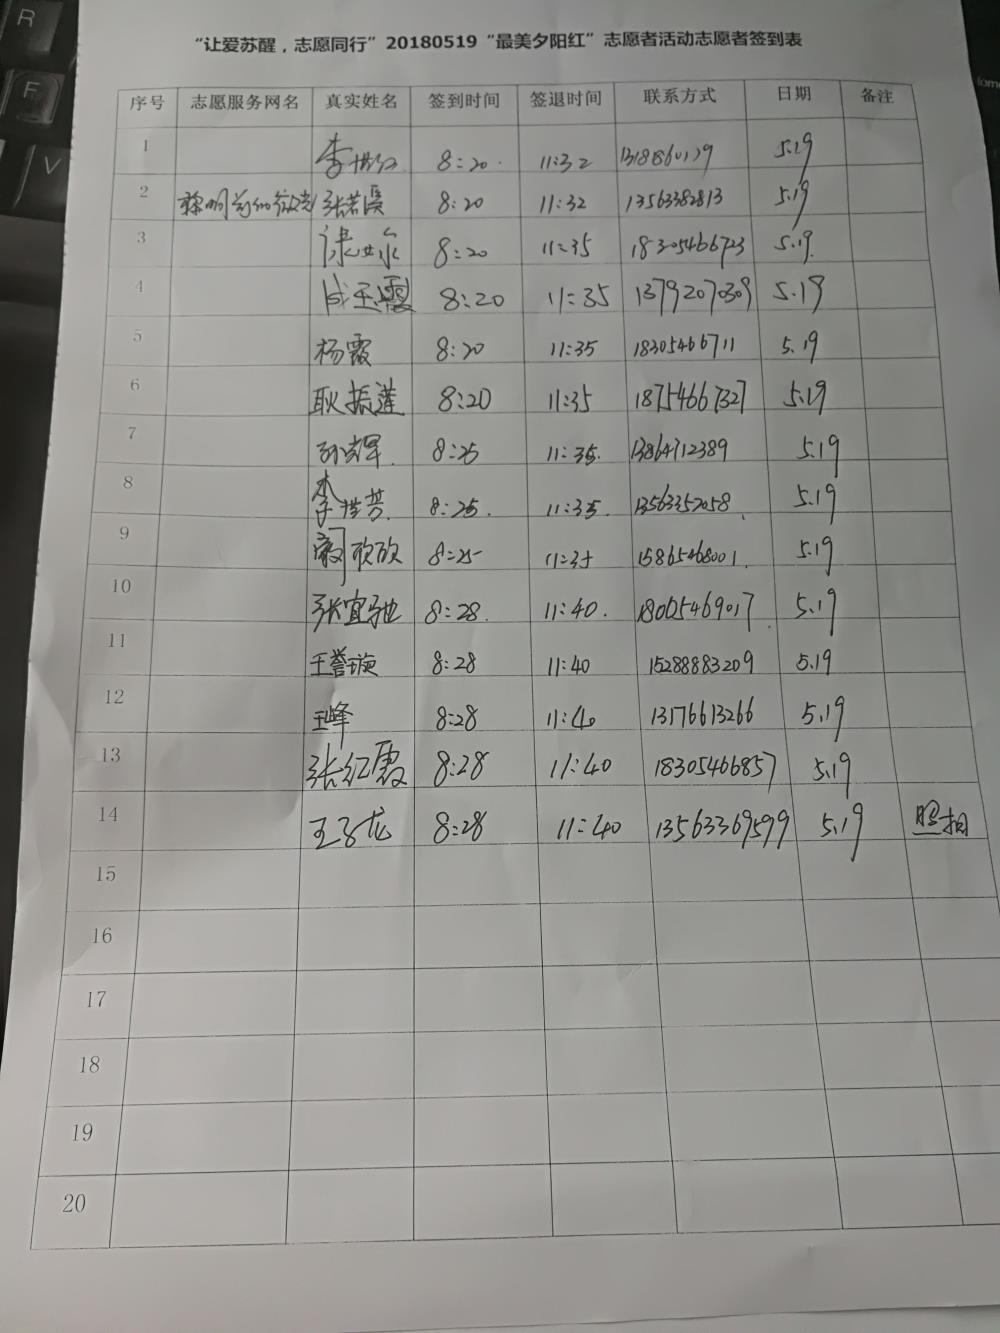 “让爱苏醒，志愿同行”20180519“最美夕阳红”志愿者活动志愿者签到表
序号 志愿服务网名 真实姓名 签到时间 签退时间 联系方式 日期 备注
1 李 8:20 11:32 5.19
2 张若溪 8:20 11:32 13563382813 5.19
3 8:20 11:35 18305466723 5.19
4 成玉霞 8:20 11:35 13792070309 5.19
5 杨霞 8:20 11:35 18305466711 5.19
6 耿振莲 8:20 11:35 18754667327 5.19
7 孙 8:25 11:35 13864712389 5.19
8 李 芳 8:25 11:35 13563352058 5.19
9 欣欣 8:25 11:35 15865468001 5.19
10 张宜驰 8:28 11:40 5.19
11 王誉璇 8:28 11:40 15288883209 5.19
12 王峰 8:28 11:40 13176613266 5.19
13 张红霞 8:28 11:40 18305466857 5.19
14 王子龙 8:28 11:40 13563369599 5.19 照相
15
16
17
18
19
20
R
F
V